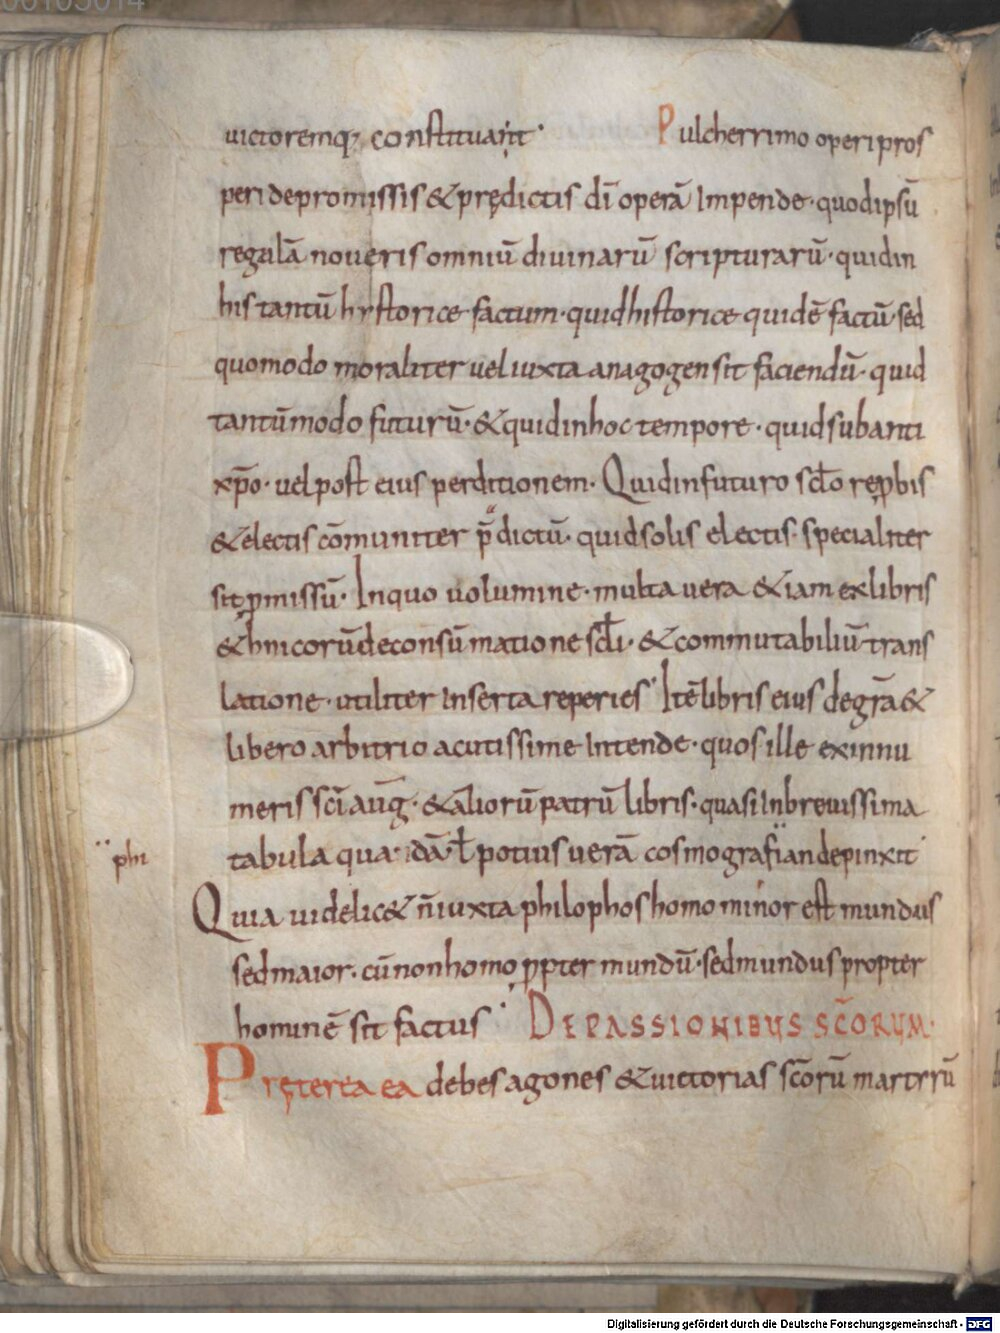 uictoremq; constituant· Pulcherrimo operi pros
peri depromissis & prędictis dī operā impende· quod ipsū
regulā noueris omniū diuinarū scripturarū· quid in
his tantū hystorice factum· quid historice quidē factū· sed
quomodo moraliter uel iuxta anagogen sit faciendū· quid
tantūmodo futurū· & quid in hoc tempore· quid sub anti
xp̄o· uel post eius perditionem· Quid in futuro sc̄lo rep̱bis
& electis cōmuniter p̄dictū· quid solis electis· specialiter
sit p̱missū· In quo uolumine· multa uera & iam ex libris
&hnicorū de consūmatione sc̄li· & commutabiliū trans
latione· utiliter inserta reperies· Itē libris eius de gr̄a &
libero arbitrio acutissime intende· quos ille ex innu
meris sc̄i auḡ· & aliorū patrū libris· quasi in breuissima
phi
tabula quadā· ł potius uerā cosmografian depinxit·
Quia uidelic& n̄ iuxta philophos homo minor est mundus
sed maior· cū non homo p̱pter mundū· sed mundus propter
hominē sit factus· DE PASSIONIBUS SC̄ORUM·
Pręterea ea debes agones & uictorias sc̄orū martyrū
Digitalisierung gefördert durch die Deutsche Forschungsgemeinschaft - DFG